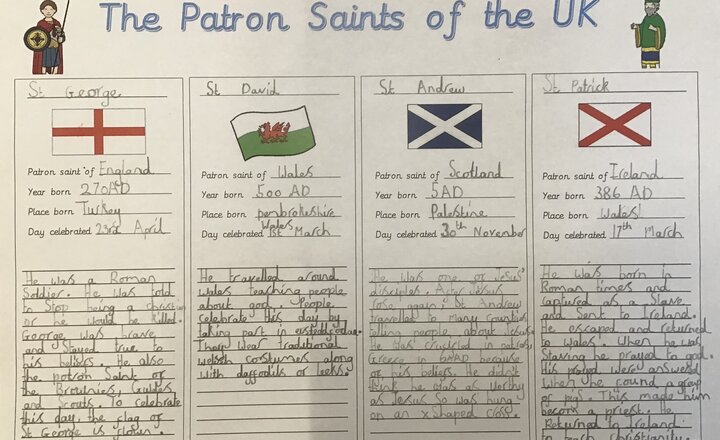 The Patron Saints of the UK
St George
Patron saint of England
Year born 270AD
Place born Turkey
Day celebrated 23rd April
He was a Roman
Soldier. He was told
to Stop being a christian
or he would be killed.
George was brave
and stayed true to
his beliefs. He also
the patron Saint of
the Brownies, Guides
and scouts. To celebrate
this day, the flag of
St George is flown.
St David
Patron saint of Wales
Year born 500 AD
Place born pembrokeshire
Wales
Day celebrated 1st March
He travelled around
Wales teaching people
about god. People
celebrate this day by
taking part in
They wear traditional
welsh costumes along
with daffodils or leeks.
St Andrew
Patron saint of Scotland
Year born 5AD
Place born Palestine
Day celebrated 30th November
He was one of Jesus'
disciples. After Jesus
rose again St Andrew
travelled to many countries
telling people about Jesus.
He was crucified in
Greece in because
of his beliefs. He didn't
think he was as worthy
as Jesus so was hung
on an x shaped cross.
St Patrick
Patron saint of Ireland
Year born 386 AD
Place born Wales
Day celebrated 17th March
He was born in
Roman times and
captured as a Slave
and Sent to Ireland.
He escaped and returned
to Wales. When he was
Starving he prayed to god.
His were answered
when he found a group
of pigs. This made him
become a priest. He
Returned to Ireland
to teach Christianity.